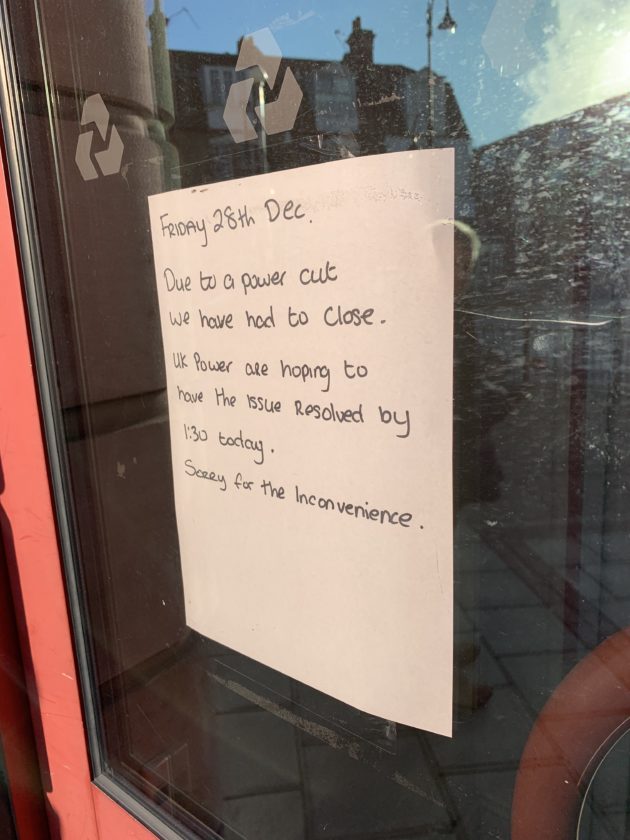 FRIDAY 28th Dec.
Due to a power cut
we have had to close.
UK Power are hoping to
have the issue Resolved by
1:30 today.
Sorry for the Inconvenience.